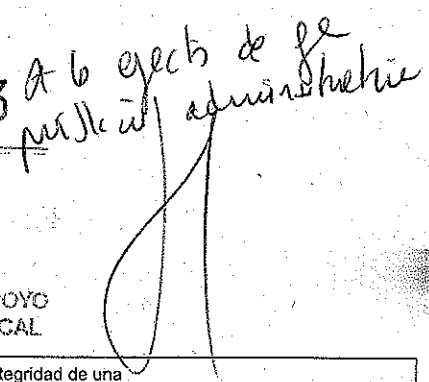 3 A lo efectos de fe
pública administrativa
OYO
CAL
tegridad de una